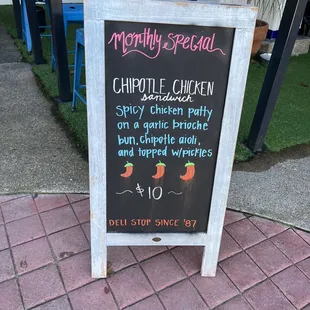 Monthly Special
CHIPOTLE CHICKEN
sandwich
SPICY CHICKEN PATTY
ON A GARLIC BRIOCHE
BUN, CHIPOTLE AIOLI,
AND TOPPED W/PICKLES
~ $10 ~
DELI STOP SINCE '87